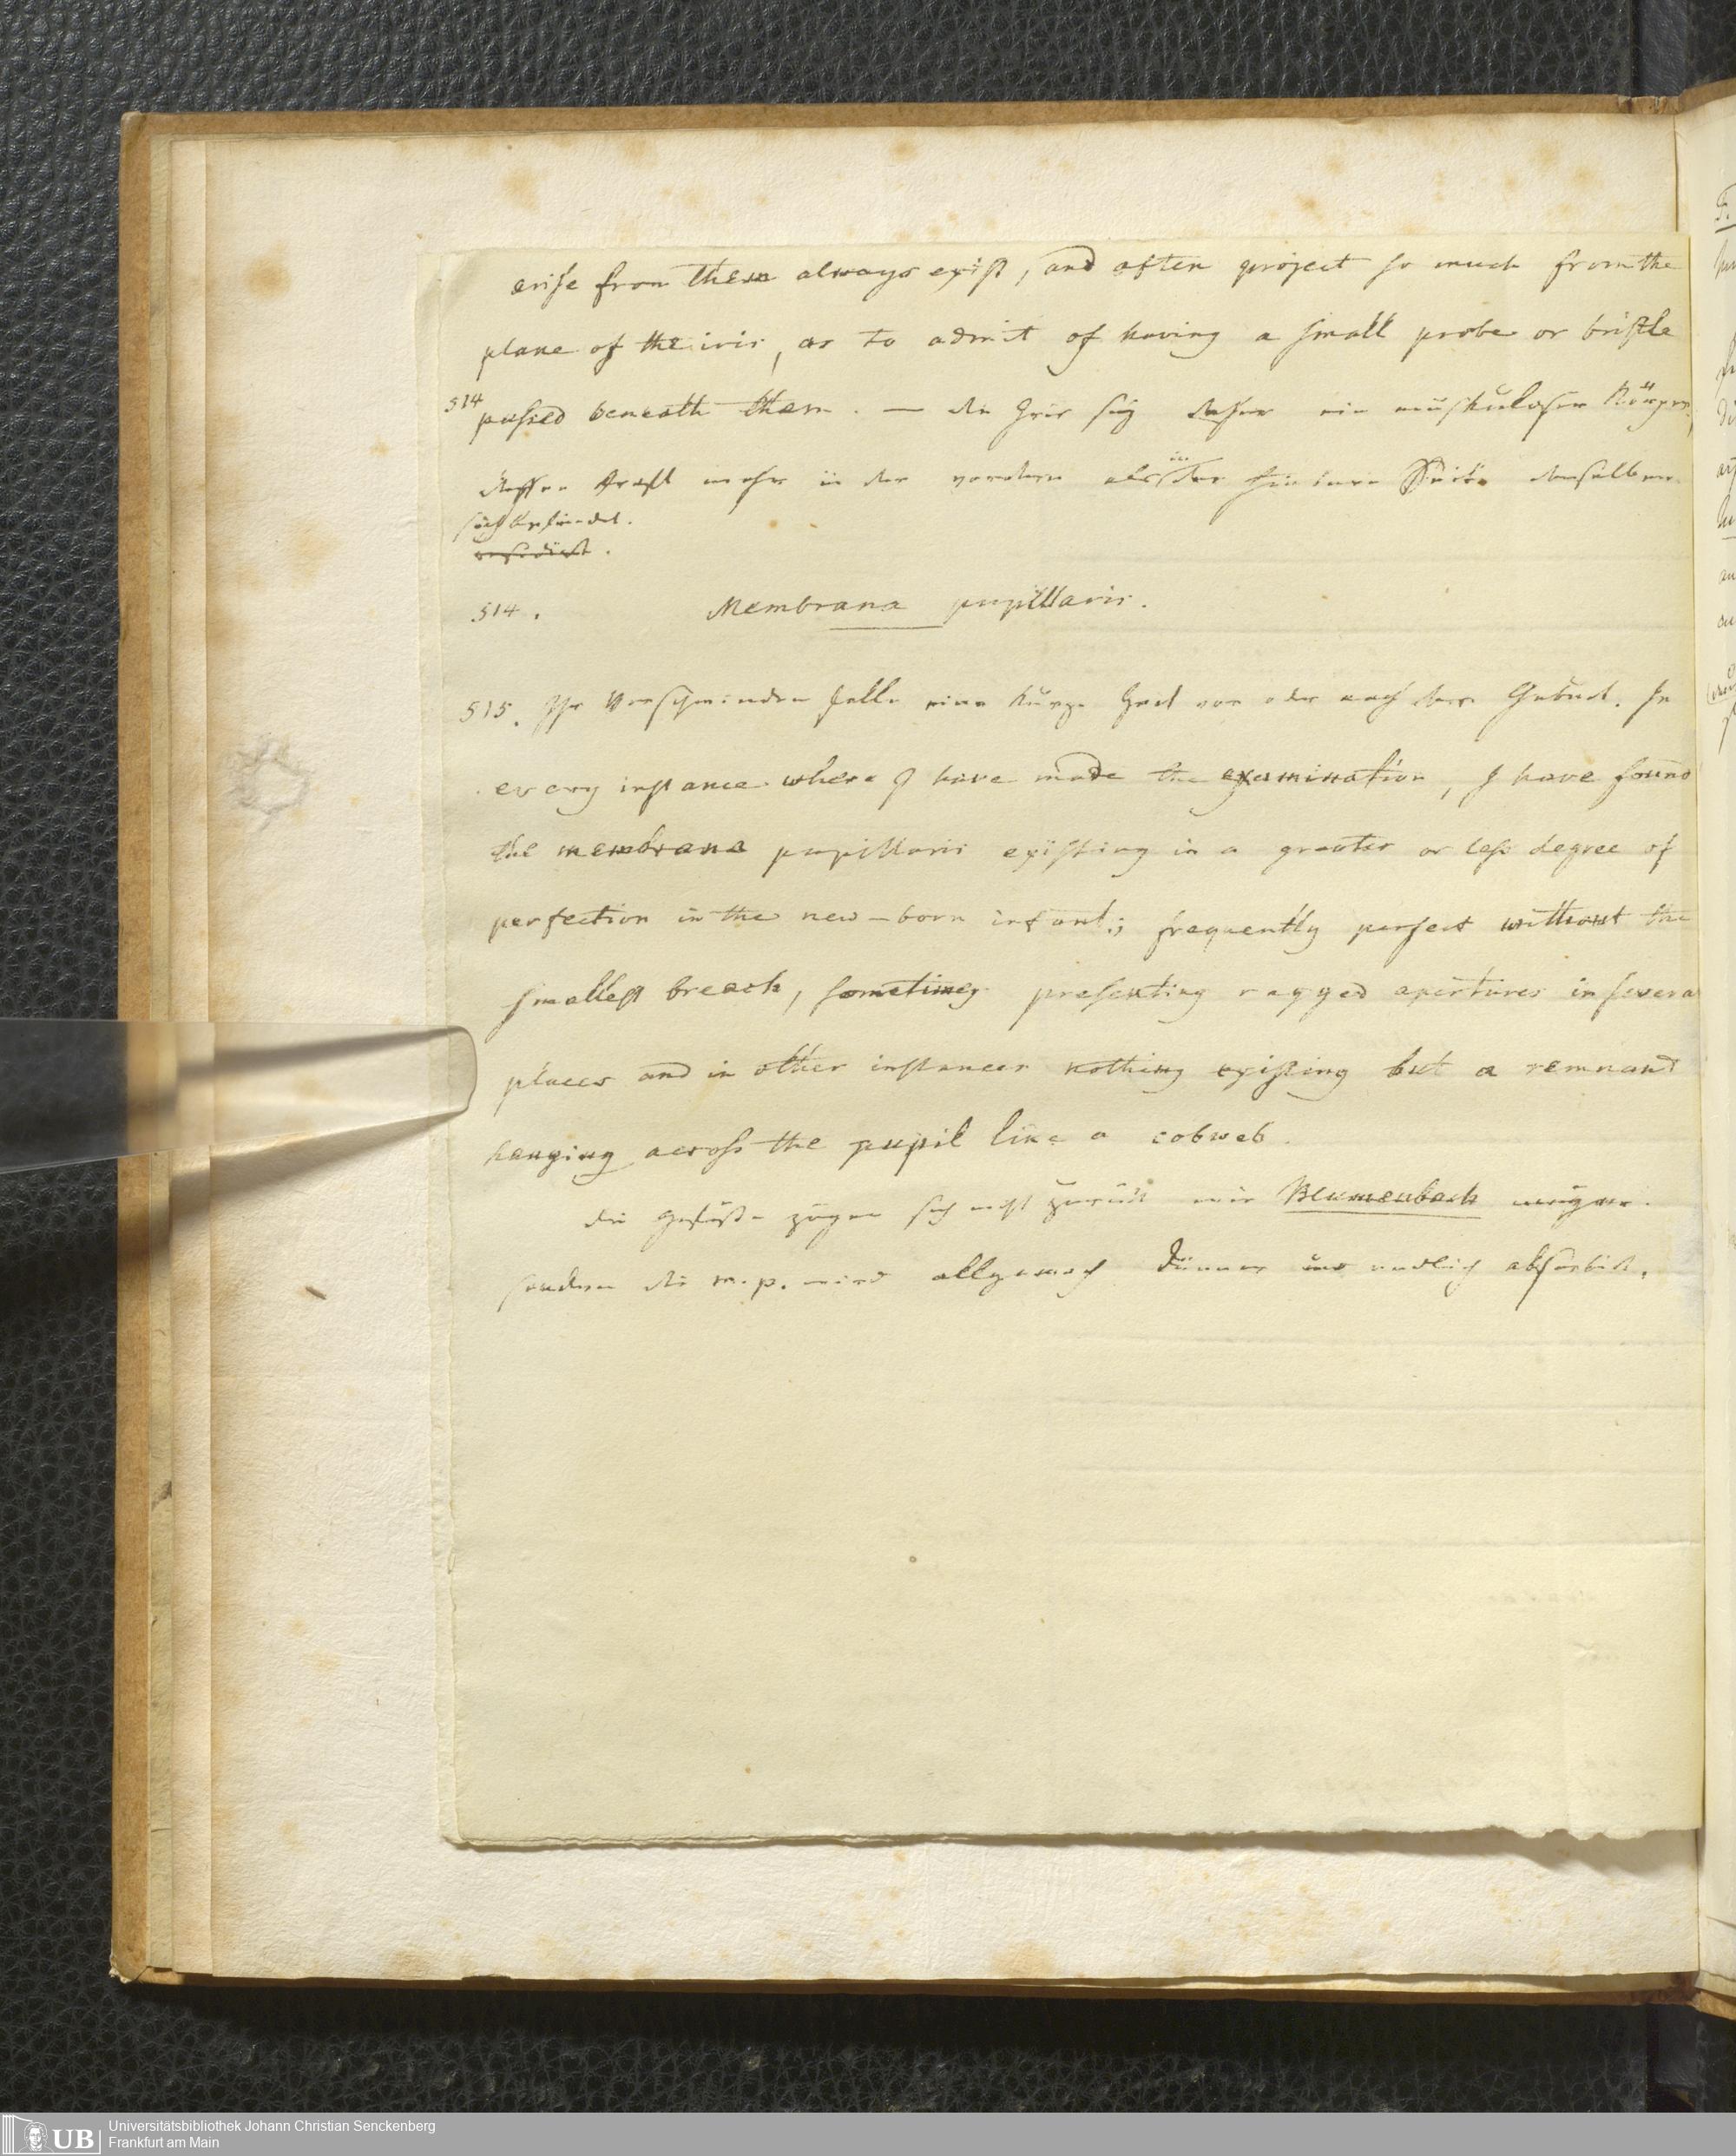 arise from them always exist, and often project so much from the
plane of the iris, as to admit of having a small probe or bristle
514 passed beneath them. — die Iris sey daher ein muskuloser Körper,
dessen Kraft mehr in der vordern als in der hintern Seite desselben
sich befindet.
514. Membrana pupillaris.
515. Ihr Verschwinden falle eine kurze Zeit vor oder nach der Geburt. In
every instance where I have made the examination, I have found
the membrana pupillaris existing in a greater or less degree of
perfection in the new-born infant; frequently perfect without the
smallest breach, sometimes presenting ragged apertures in severa
places and in other instances nothing existing but a remnant
hanging across the pupil like a cobweb.
die Gefäße zögen sich nicht zurück wie Blumenbach
sondern die m. p. wird allgemach dünner und endlich absorbirt.
Universitätsbibliothek Johann Christian Senckenberg
UB Frankfurt am Main